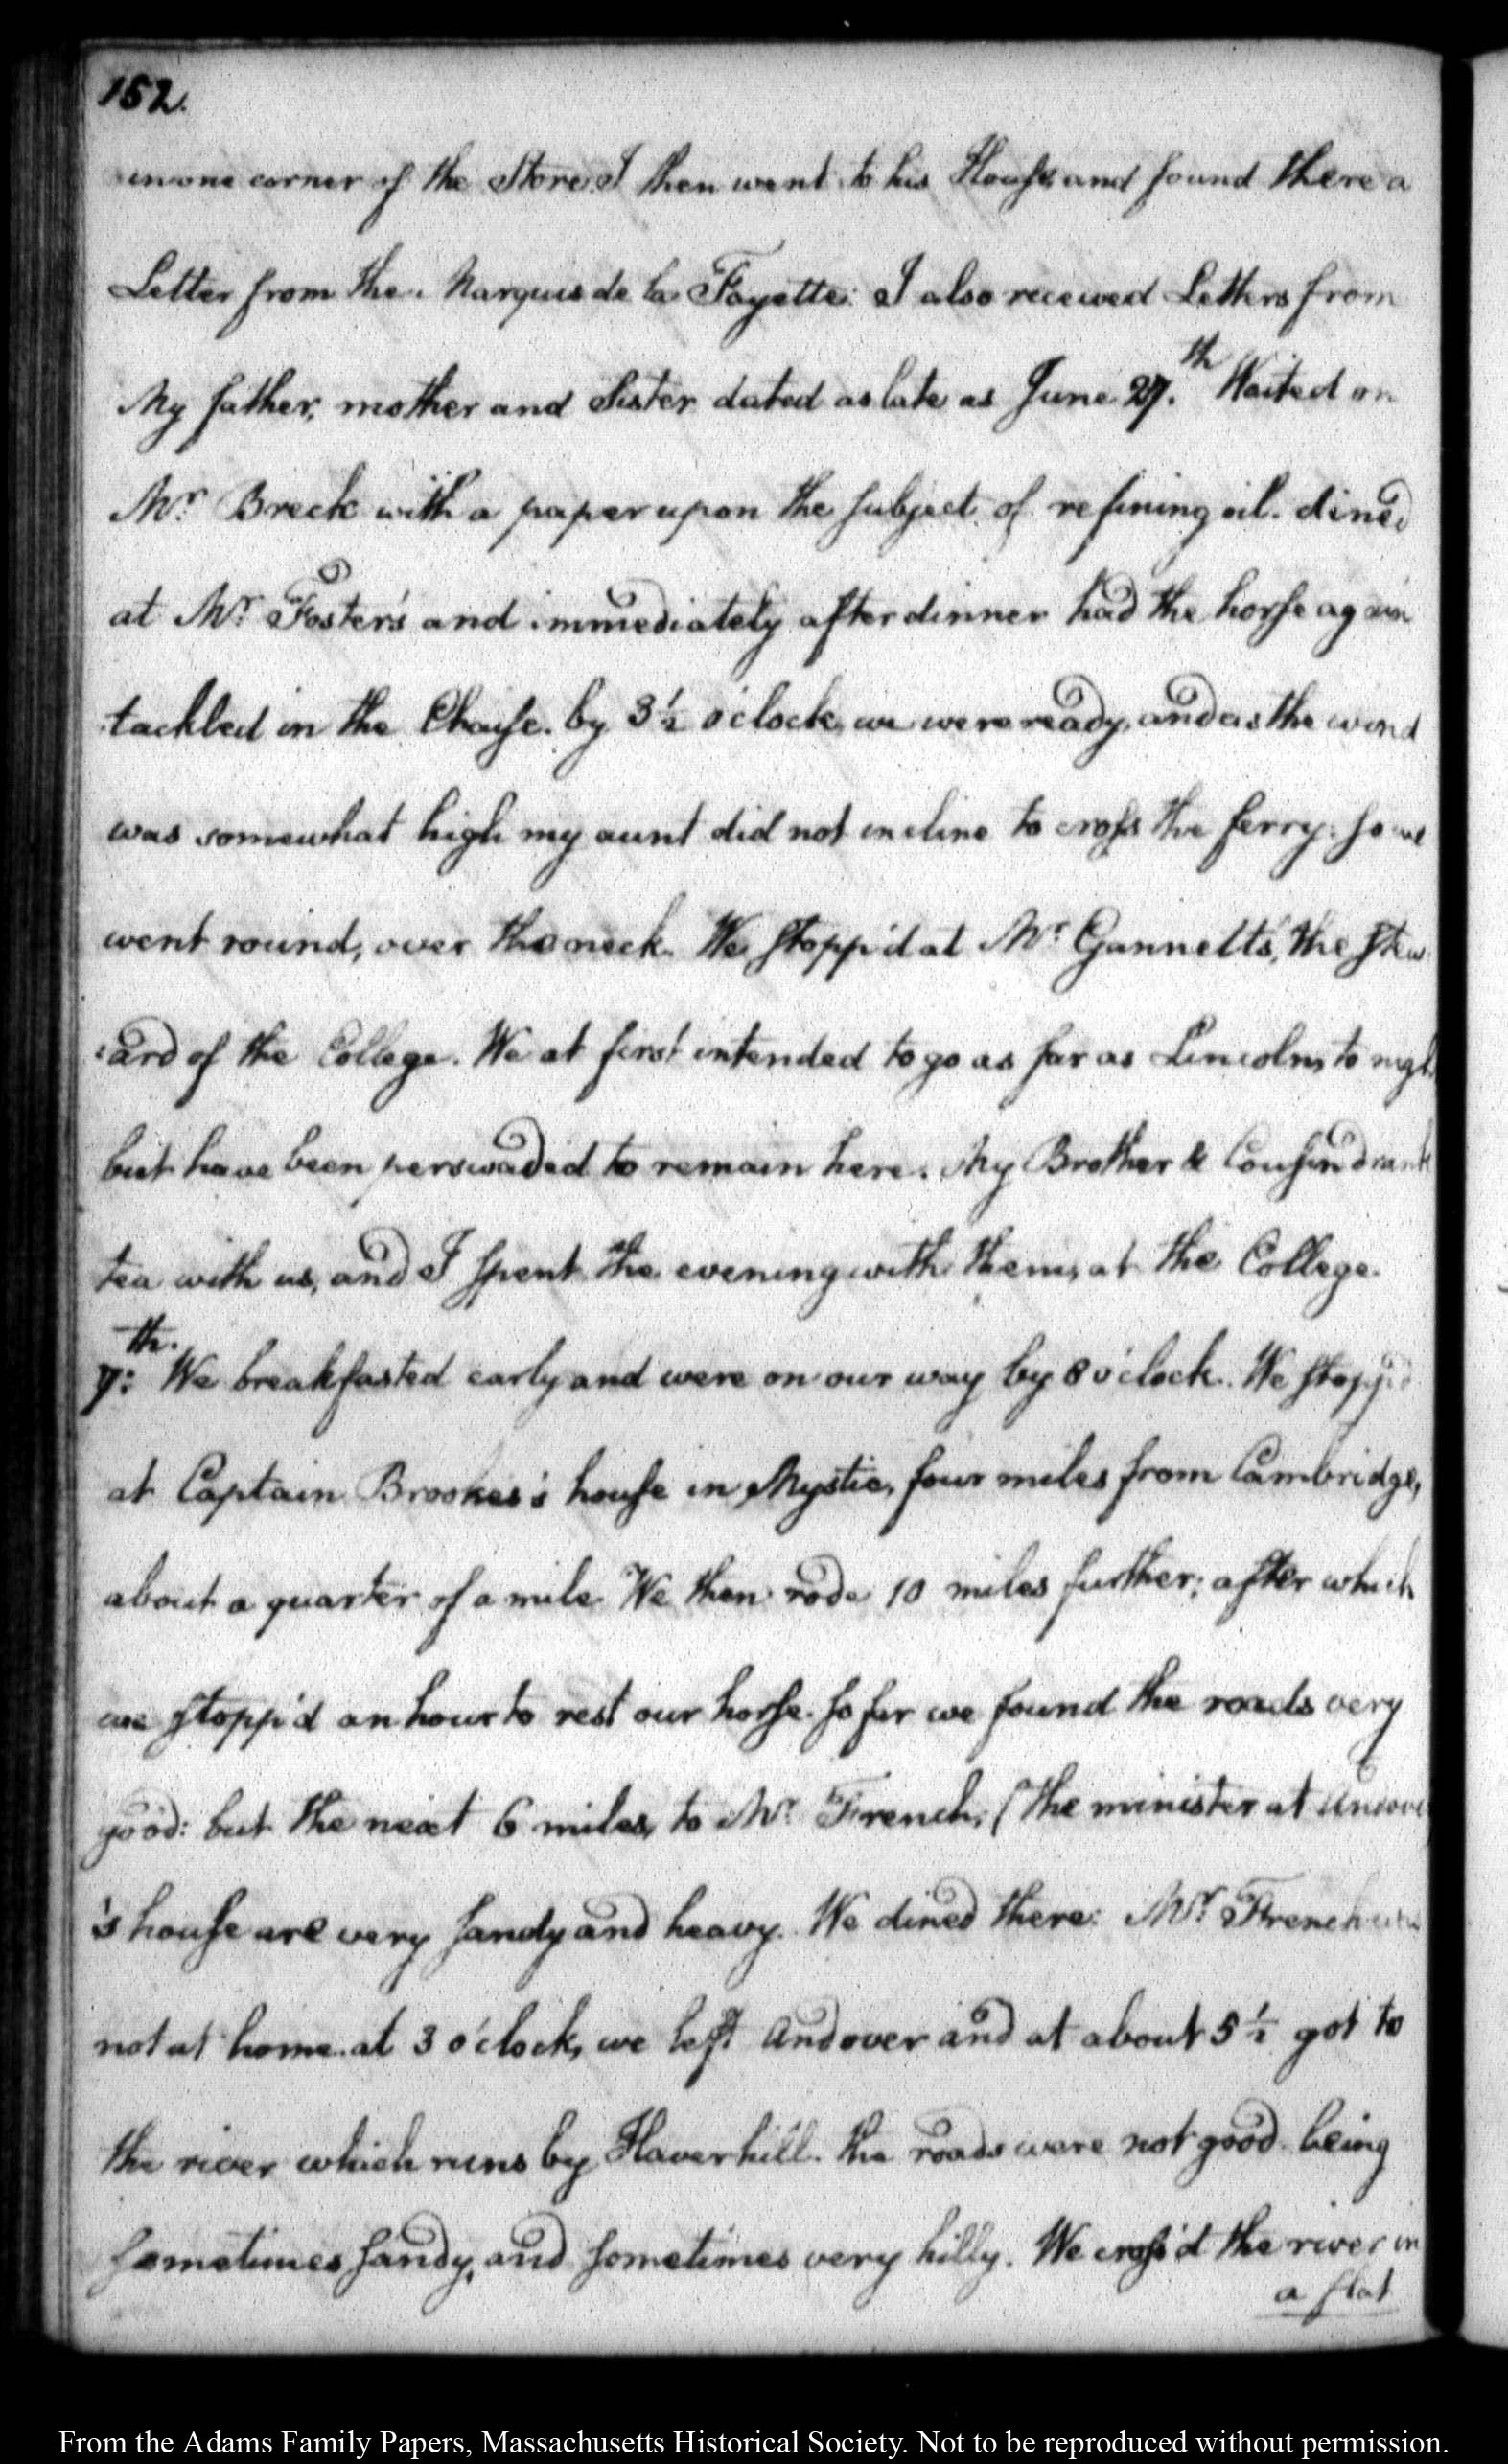 152.
in one corner of the Store. I then went to his House, and found there a
Letter from the Marquis de la Fayette: I also received Letters from
My father, mother and Sister dated as late as June 27.th Waited on
Mr. Breck with a paper upon the subject of refining oil. dined
at Mr. Foster's and immediately after dinner had the horse again
tackled in the Chaise. by 3½ o'clock, we were ready, and as the wind
was somewhat high my aunt did not incline to cross the ferry. so we
went round, over the neck. We stopp'd at Mr. Gannett's, the stew
:ard of the College. We at first intended to go as far as Lincoln, to night
but have been perswaded to remain here. My Brother & Cousin drank
tea with us, and I spent the evening with them, at the College.
7:th. We breakfasted early and were on our way by 8 o'clock. We stopp'd
at Captain Brookes's house in Mystic, four miles from Cambridge,
about a quarter of a mile. We then rode 10 miles further; after which
we stopp'd an hour to rest our horse. so far we found the roads very
good: but the next 6 miles, to Mr. French, (the minister at Andover)
's house are very sandy and heavy. We dined there: Mr. French was
not at home. at 3 o'clock, we left Andover and at about 5½ got to
the river which runs by Haverhill. the roads were not good being
sometimes sandy, and sometimes very hilly. We cross'd the river in
a flat
From the Adams Family Papers, Massachusetts Historical Society. Not to be reproduced without permission.